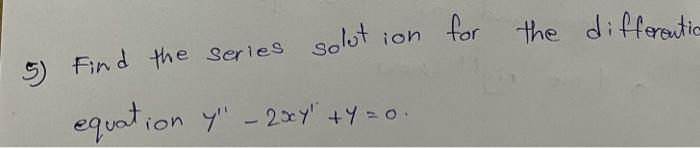 5) Find the series solution for the differentic
equation y'' - 2xy' + y = 0.